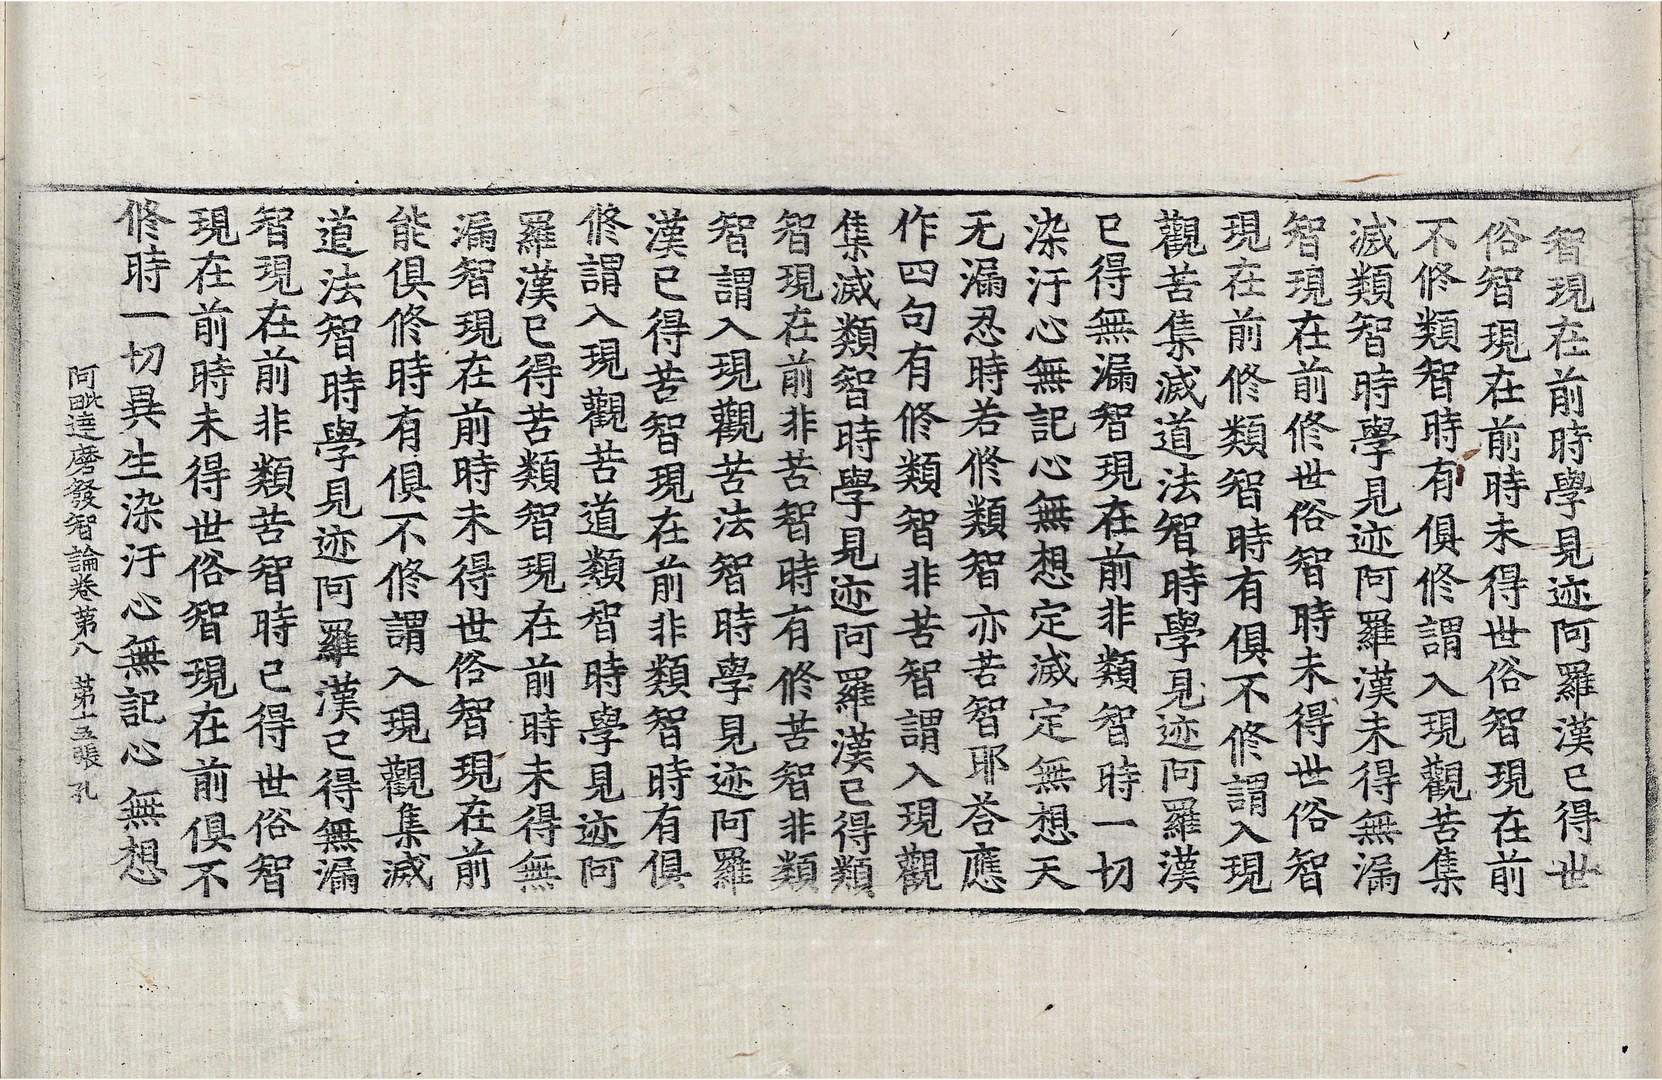 智現在前時學見迹阿羅漢已得世
俗智現在前時未得世俗智現在前
不修類智時有俱修謂入現觀苦集
滅類智時學見迹阿羅漢未得無漏
智現在前修世俗智時未得世俗智
現在前修類智時有俱不修謂入現
觀苦集滅道法智時學見迹阿羅漢
已得無漏智現在前非類智時一切
染汙心無記心無想定滅定無想天
无漏忍時若修類智亦苦智耶荅應
作四句有修類智非苦智謂入現觀
集滅類智時學見迹阿羅漢已得類
智現在前非苦智時有修苦智非類
智謂入現觀苦法智時學見迹阿羅
漢已得苦智現在前非類智時有俱
修謂入現觀苦道類智時學見迹阿
羅漢已得苦類智現在前時未得無
漏智現在前時未得世俗智現在前
能俱修時有俱不修謂入現觀集滅
道法智時學見迹阿羅漢已得無漏
智現在前非類苦智時已得世俗智
現在前時未得世俗智現在前俱不
修時一切異生染汙心無記心無想
阿毗達磨發智論卷第八 第十五張 孔